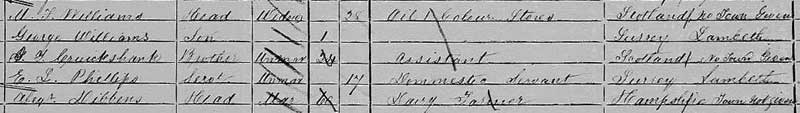 M. F. Williams Head Widow 38 Oil & Colour Stores Scotland / No Town Given
George Williams Son 1 Surrey Lambeth
G. F. Cruickshank Brother Unmar 34 Assistant Scotland / No Town Given
E. L. Phillips Servt Unmar 17 Dommestic Servant Surrey Lambeth
Alexr Hibbens Head Mar 60 Navy Hampshire Town not given